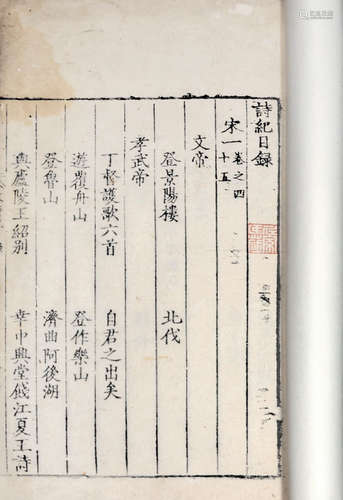 詩紀目錄
宋一 卷之四十五
文帝
登景陽樓 北伐
孝武帝
丁督護歌六首 自君之出矣
遊覆舟山 登作樂山
登魯山 濟曲阿後湖
與廬陵王紹別 幸中興堂餞江夏王詩